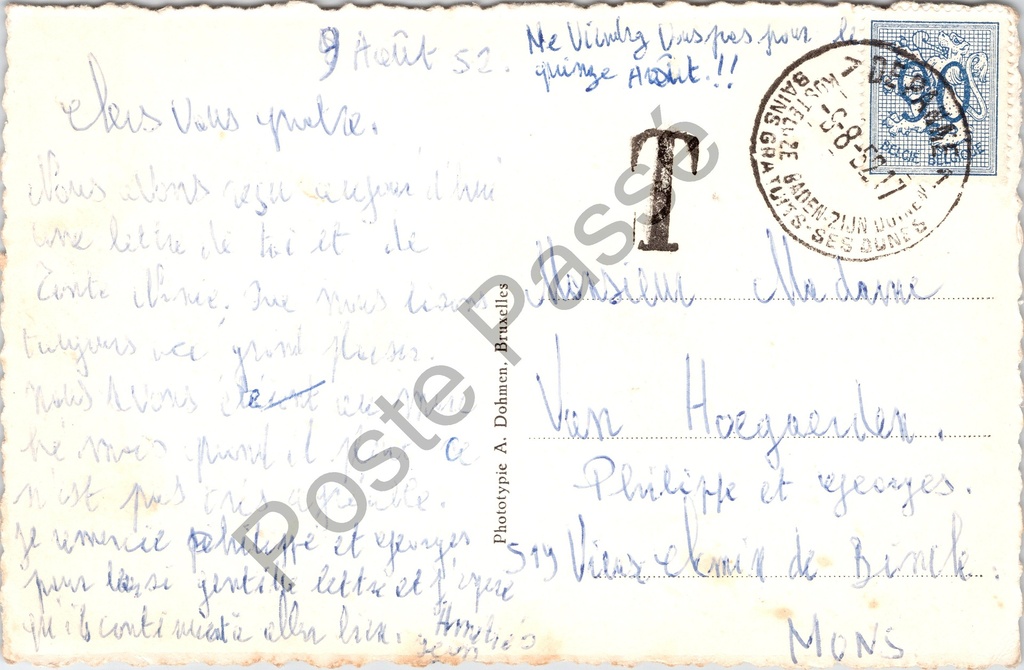 9 Août 52.
Ne Viendez Vous pas pour le
quinze Août.!!
Chers Vous quatre.
Nous Avons reçu aujourd'hui
une lettre de toi et de
Tante Ninie. Que nous lisons
toujours avec grand plaisir.
nous Avons été au
mais quand il ce
n'est pas très agréable.
je remercie philippe et Georges
pour leur gentille lettre et j'espère
qu'ils continuent à aller bien.
T
DE PANNE
KUSTELIJKE BADEN ZIJN DUINEN
BAINS GRATUITS-SES DUNES
-8-52 17
90
BELGIE BELGIQUE
Photoypie A. Dohmen, Bruxelles
Monsieur Madame
Van Hoegaerden.
Philippe et Georges.
519 Vieux chemin de Binche.
MONS
Poste Passé